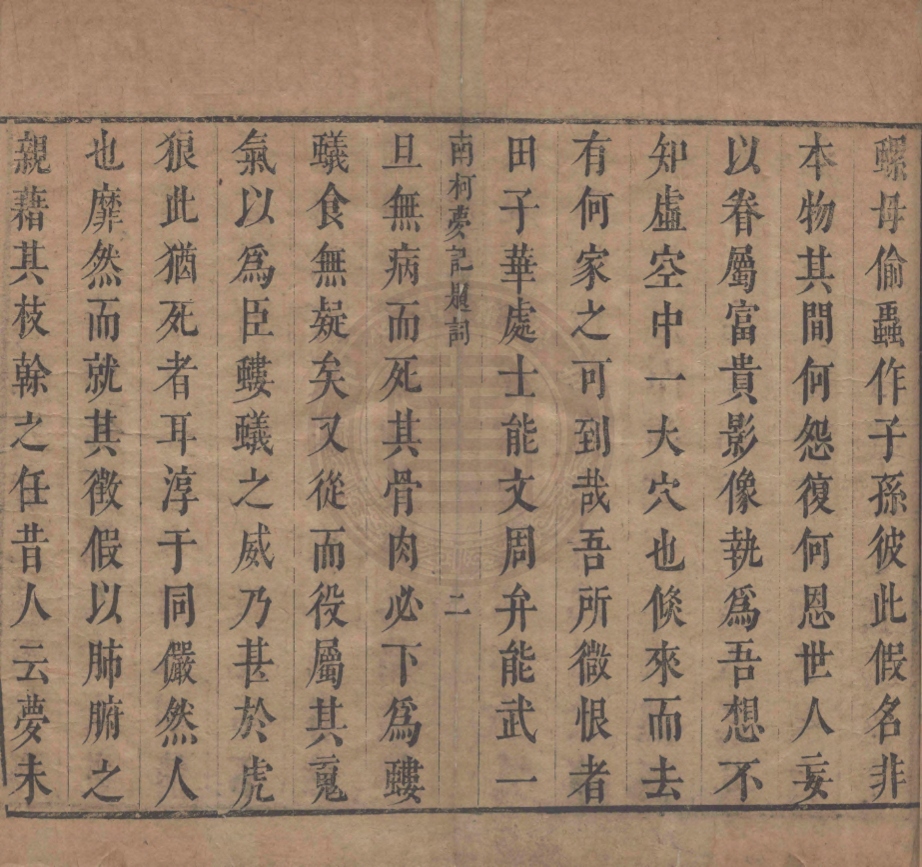 螺母偷蟲作子孫彼此假名非
本物其間何怨復何恩世人妄
以眷屬富貴影像執爲吾想不
知虛空中一大穴也倐來而去
有何家之可到哉吾所微恨者
田子華處士能文周弁能武一
南柯夢記題詞 二
旦無病而死其骨肉必下爲螻
蟻食無疑矣又從而役屬其䰟
氣以爲臣螻蟻之威乃甚於虎
狼此猶死者耳淳于同儼然人
也靡然而就其徵假以肺腑之
親藉其枝幹之任昔人云夢未